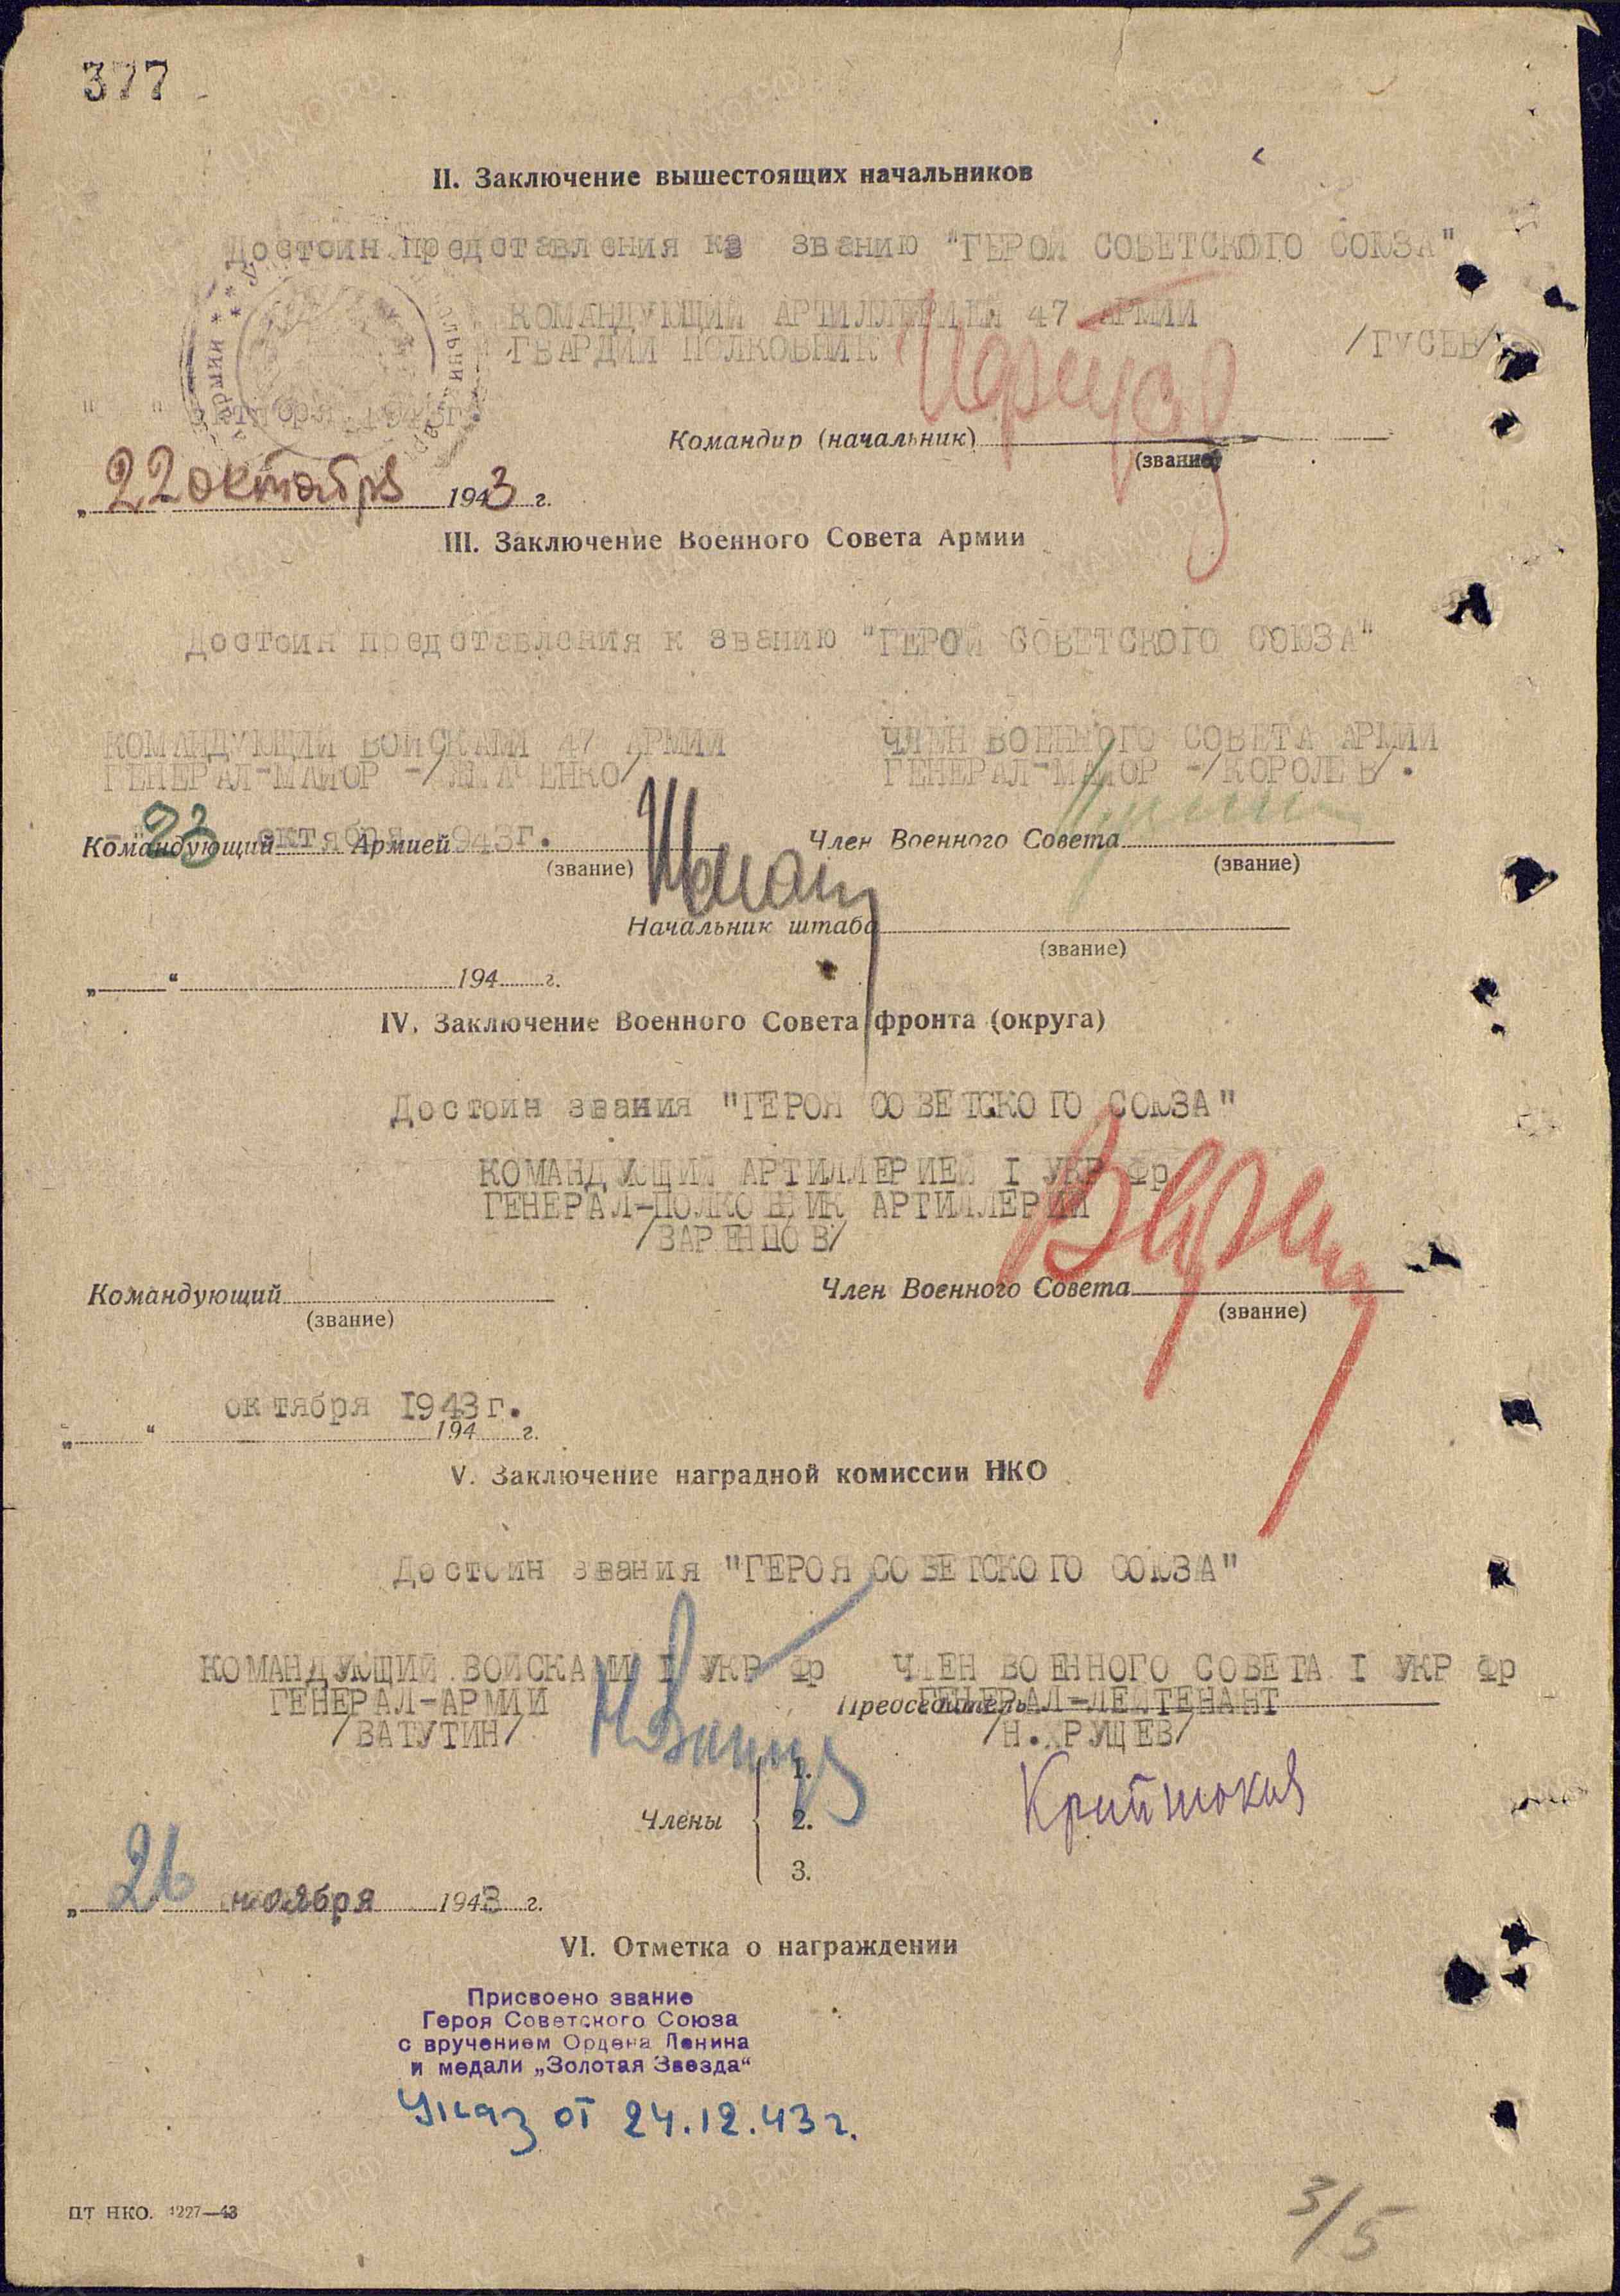 377
II. Заключение вышестоящих начальников
Достоин представления к званию "ГЕРОЙ СОВЕТСКОГО СОЮЗА"
КОМАНДУЮЩИЙ АРТИЛЛЕРИЕЙ 47 АРМИИ
ГВАРДИИ ПОЛКОВНИК /ГУСЕВ/
" " октября 1943г.
Командир (начальник)
(звание)
„22 октября 1943 г.
III. Заключение Военного Совета Армии
Достоин представления к званию "ГЕРОЙ СОВЕТСКОГО СОЮЗА"
КОМАНДУЮЩИЙ ВОЙСКАМИ 47 АРМИИ ЧЛЕН ВОЕННОГО СОВЕТА АРМИИ
ГЕНЕРАЛ-МАЙОР -/ЖМАЧЕНКО/ ГЕНЕРАЛ-МАЙОР -/КОРОЛЕВ/.
23 октября 1943г.
Командующий Армией Член Военного Совета
(звание) (звание)
Начальник штаба
(звание)
„ “ 194 г.
IV. Заключение Военного Совета фронта (округа)
Достоин звания "ГЕРОЯ СОВЕТСКОГО СОЮЗА"
КОМАНДУЮЩИЙ АРТИЛЛЕРИЕЙ I УКР фр
ГЕНЕРАЛ-ПОЛКОВНИК АРТИЛЛЕРИИ
/ВАРЕНЦОВ/
Командующий Член Военного Совета
(звание) (звание)
октября 1943г.
„ “ 194 г.
V. Заключение наградной комиссии НКО
Достоин звания "ГЕРОЯ СОВЕТСКОГО СОЮЗА"
КОМАНДУЮЩИЙ ВОЙСКАМИ I УКР фр ЧЛЕН ВОЕННОГО СОВЕТА I УКР фр
ГЕНЕРАЛ-АРМИИ ГЕНЕРАЛ-ЛЕЙТЕНАНТ
Председатель
/ВАТУТИН/ /Н.ХРУЩЕВ/
1.
Члены 2.
3.
„26 ноября 1943 г.
VI. Отметка о награждении
Присвоено звание
Героя Советского Союза
с вручением Ордена Ленина
и медали „Золотая Звезда“
Указ от 24.12.43г.
ПТ НКО. 1227—43
3/5